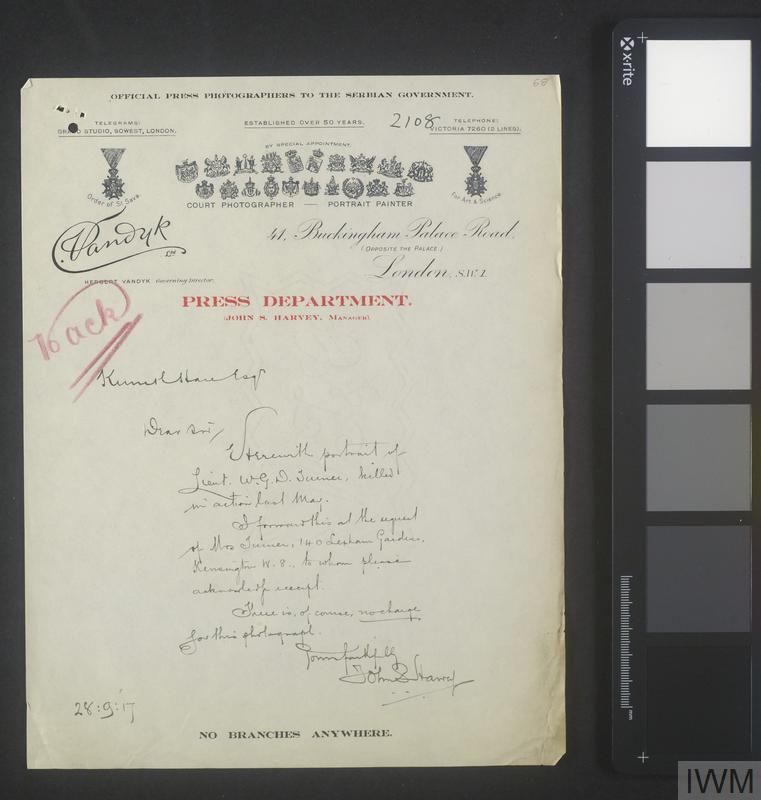 68
OFFICIAL PRESS PHOTOGRAPHERS TO THE SERBIAN GOVERNMENT.
TELEGRAMS:
STUDIO, SOWEST, LONDON.
ESTABLISHED OVER 50 YEARS.
2108
TELEPHONE:
VICTORIA 7260 (2 LINES).
BY SPECIAL APPOINTMENT.
Order of St Sava.
For Art & Science
COURT PHOTOGRAPHER — PORTRAIT PAINTER
Vandyk
LTD
41, Buckingham Palace Road,
(OPPOSITE THE PALACE.)
London, S.W.1.
HERBERT VANDYK Governing Director.
PRESS DEPARTMENT.
(JOHN S. HARVEY, MANAGER).
To ack
Kenneth Hare Esqr
Dear Sir,
Herewith portrait of
Lieut. W.G.D. Turner, killed
in action last May.
I forward this at the request
of Mrs Turner, 140 Lexham Gardens,
Kensington W.8., to whom please
acknowledge receipt.
There is, of course, no charge
for this photograph.
Yours faithfully
John S Harvey
28:9:17
NO BRANCHES ANYWHERE.
x-rite
mm
IWM